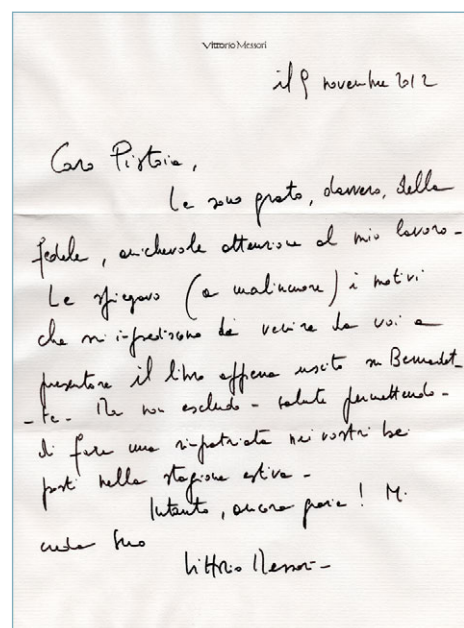 Vittorio Messori
il 9 novembre 2012
Caro Pistoia,
Le sono grato, davvero, della
fedele, amichevole attenzione al mio lavoro-
Le spiegavo (a malincuore) i motivi
che mi impediscono di venire da voi a
presentare il libro appena uscito su Bernadet-
-te- Ma non escludo- salute permettendo-
di fare una rimpatriata nei vostri bei
posti nella stagione estiva-
Intanto, ancora grazie! Mi
creda Suo
Vittorio Messori-